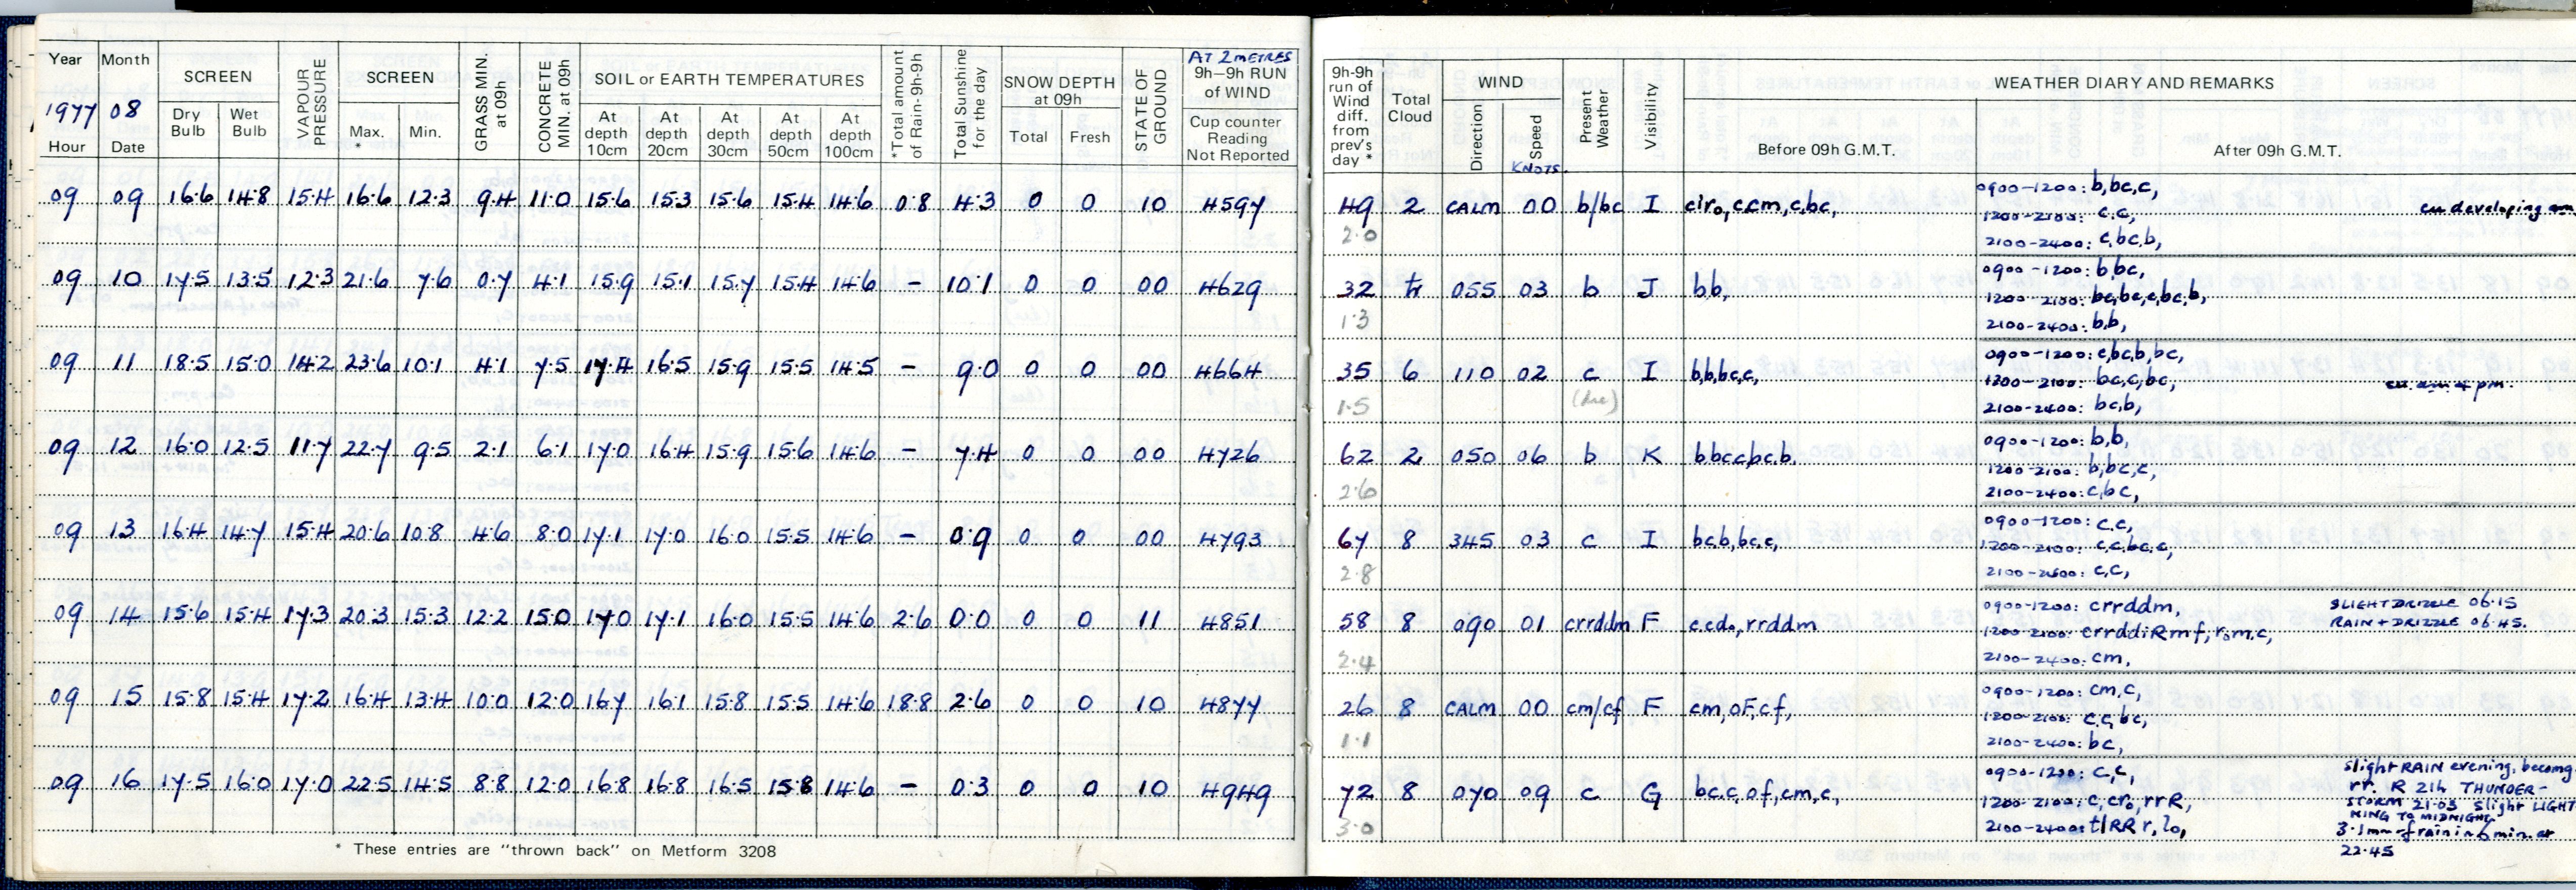 Year Month SCREEN VAPOUR PRESSURE SCREEN GRASS MIN. at 09h CONCRETE MIN. at 09h SOIL or EARTH TEMPERATURES *Total amount of Rain-9h-9h Total Sunshine for the day SNOW DEPTH at 09h STATE OF GROUND AT 2 METRES 9h–9h RUN of WIND
1977 08 Dry Bulb Wet Bulb Max. * Min. At depth 10cm At depth 20cm At depth 30cm At depth 50cm At depth 100cm Total Fresh Cup counter Reading Not Reported
Hour Date
09 09 16.6 14.8 15.4 16.6 12.3 9.4 11.0 15.6 15.3 15.6 15.4 14.6 0.8 4.3 0 0 10 4597
09 10 17.5 13.5 12.3 21.6 7.6 0.7 4.1 15.9 15.1 15.7 15.4 14.6 – 10.1 0 0 00 4629
09 11 18.5 15.0 14.2 23.6 10.1 4.1 7.5 17.4 16.5 15.9 15.5 14.5 – 9.0 0 0 00 4664
09 12 16.0 12.5 11.7 22.7 9.5 2.1 6.1 17.0 16.4 15.9 15.6 14.6 – 7.4 0 0 00 4726
09 13 16.4 14.7 15.4 20.6 10.8 4.6 8.0 17.1 17.0 16.0 15.5 14.6 – 0.9 0 0 00 4793
09 14 15.6 15.4 17.3 20.3 15.3 12.2 15.0 17.0 17.1 16.0 15.5 14.6 2.6 0.0 0 0 11 4851
09 15 15.8 15.4 17.2 16.4 13.4 10.0 12.0 16.7 16.1 15.8 15.5 14.6 18.8 2.6 0 0 10 4877
09 16 17.5 16.0 17.0 22.5 14.5 8.8 12.0 16.8 16.8 16.5 15.8 14.6 – 0.3 0 0 10 4949
* These entries are "thrown back" on Metform 3208
9h-9h run of Wind diff. from prev's day * Total Cloud WIND Present Weather Visibility WEATHER DIARY AND REMARKS
Direction Speed KNOTS. Before 09h G.M.T. After 09h G.M.T.
49 2 CALM 00 b/bc I ciro,ccm,c,bc, 0900-1200: b,bc,c,
2.0 1200-2100: c,c, cu developing am
2100-2400: c,bc,b,
32 tr 055 03 b J b,b, 0900-1200: b,bc,
1.3 1200-2100: bc,bc,c,bc,b,
2100-2400: b,b,
35 6 110 02 c I b,b,bc,c, 0900-1200: c,bc,b,bc,
1.5 1200-2100: bc,c,bc, cu. am & pm.
2100-2400: bc,b,
62 2 050 06 b K b,bc,c,bc,b, 0900-1200: b,b,
2.6 1200-2100: b,bc,c,
2100-2400: c,bc,
67 8 345 03 c I bc,b,bc,c, 0900-1200: c,c,
2.8 1200-2100: c,c,bc,c,
2100-2400: c,c,
58 8 090 01 crrddm F c,cdo,rrddm 0900-1200: crrddm, SLIGHT DRIZZLE 06.15
1200-2100: crrddiRmf,romc, RAIN + DRIZZLE 06.45.
2.4 2100-2400: cm,
26 8 CALM 00 cm/cf F cm,oF,cf, 0900-1200: cm,c,
1.1 1200-2100: c,c,bc,
2100-2400: bc,
72 8 070 09 c G bc,c,of,cm,c, 0900-1200: c,c,
3.0 1200-2100: c,cro,rrR,
2100-2400: tlRRr,lo,
Slight RAIN evening, becomg
rr. R 21h THUNDER-
STORM 21.03 Slight LIGHT
NING TO MIDNIGHT
3.1mm of rain in 6 min. at
22.45